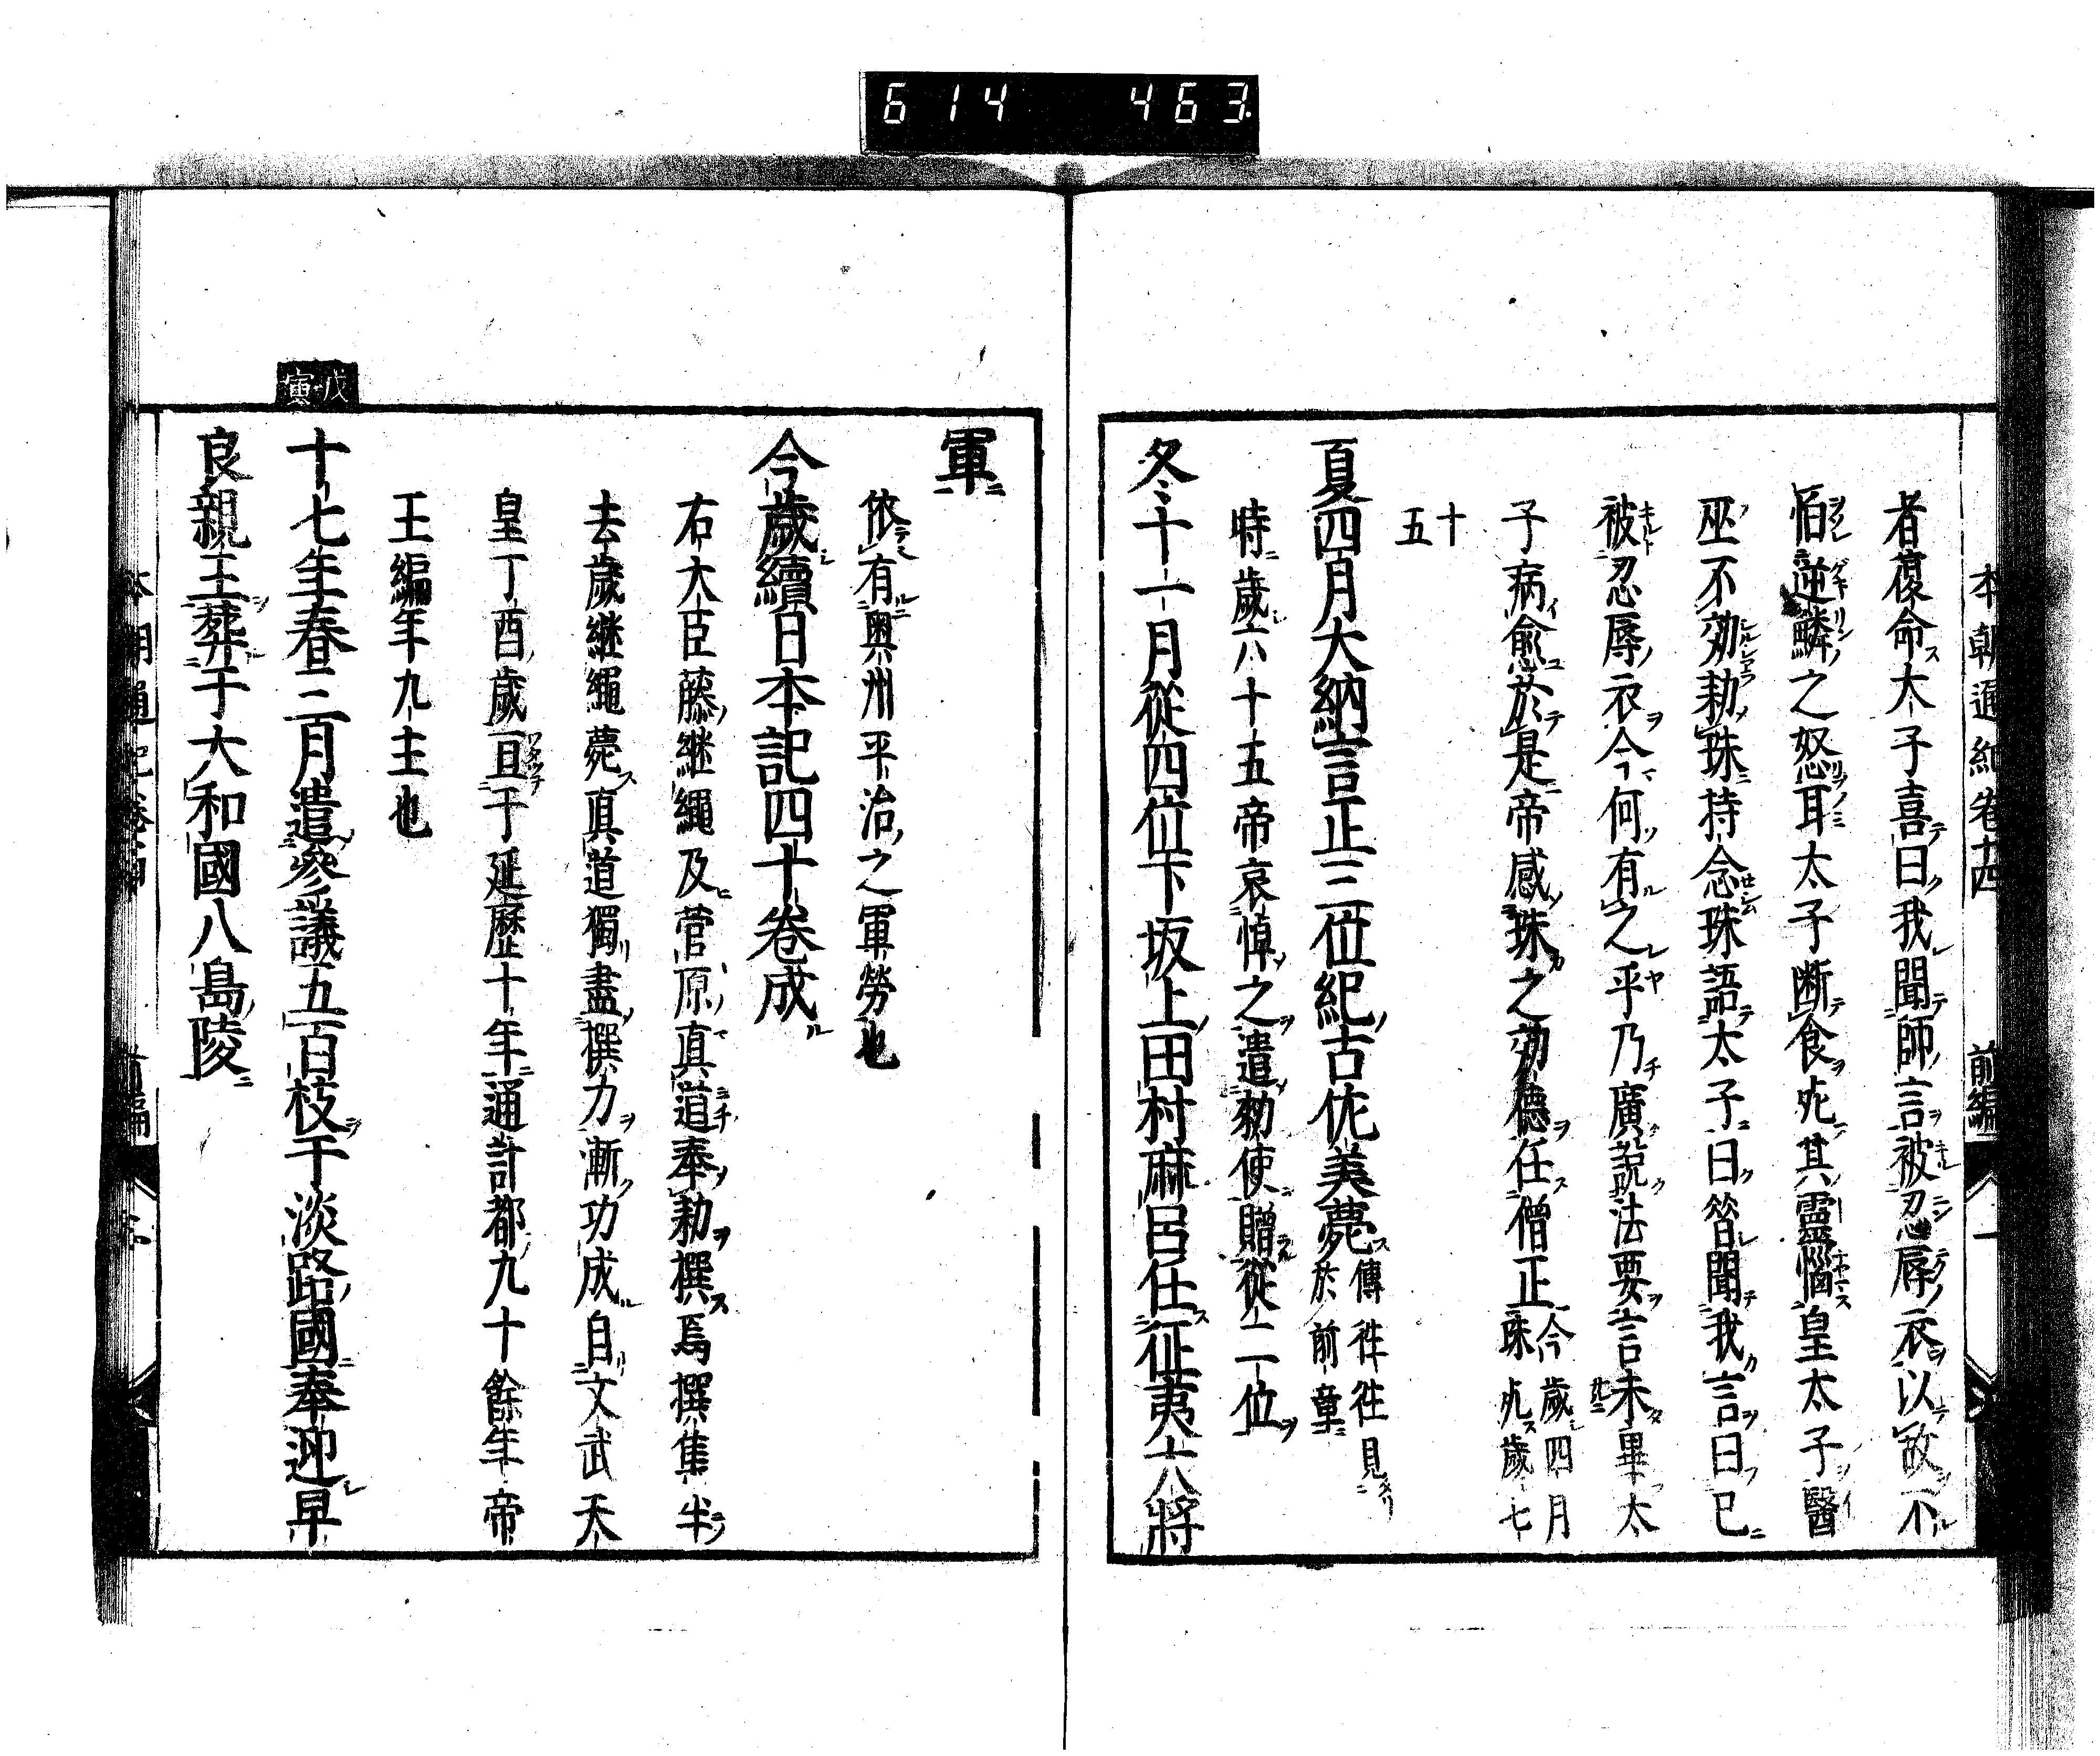 614 463
本朝通紀卷十四 前編 一
者復命太子喜曰我聞師言被忍辱衣以故不
怕逆鱗之怒耳太子断食死其靈惱皇太子醫
巫不効勅珠持念珠語太子曰昝聞我言曰已
被忍辱衣今何有之乎乃廣說法要言未畢太
子病愈於是帝感珠之効德任僧正今歲四月
珠死歲七
十
五
夏四月大納言正三位紀古佐美薨傳往往見
於前童
時歲六十五帝哀悼之遣勅使贈從二位
冬十一月從四位下坂上田村麻呂任征夷大將
軍
依有奥州平治之軍勞也
今歲續日本記四十卷成
右大臣藤継繩及菅原真道奉勅撰焉撰集半
去歲継繩薨真道獨盡撰力漸功成自文武天
皇丁酉歲亘于延歷十年通計都九十餘年帝
王編年九主也
戊寅
十七年春三月遣參議五百枝于淡路國奉迎早
良親王葬于大和國八島陵
本朝通紀卷 前編